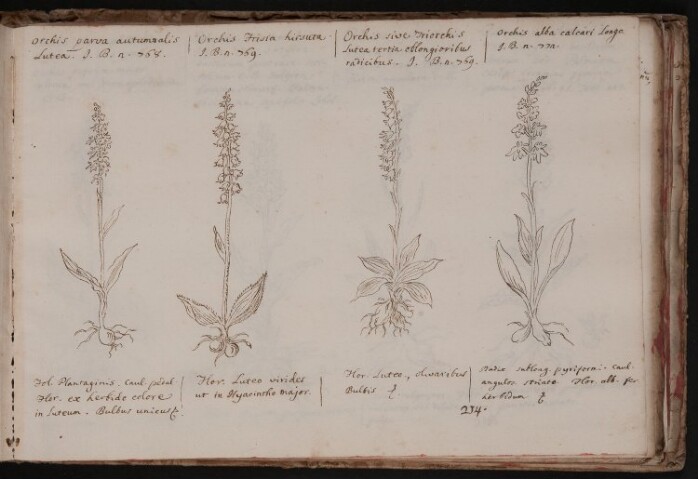 Orchis parva autumnalis
Lutea. J. B. n. 768.
Orchis Frisia hirsuta.
J. B. n. 769.
Orchis sive Triorchis
Lutea tertia oblongioribus
radicibus. J. B. n. 769.
Orchis alba calcari Longo
J. B. n. 771.
Fol. Plantaginis. Caul. pedal.
Flor. ex herbido colore
in Luteum. Bulbus unicus
Flor. Luteo virides
ut in Hyacintho major.
Flor. Luteo, olivaribus
Bulbis
Radix oblong. pyriformi. Caul.
angulos. striato. Flor. alb.
214.